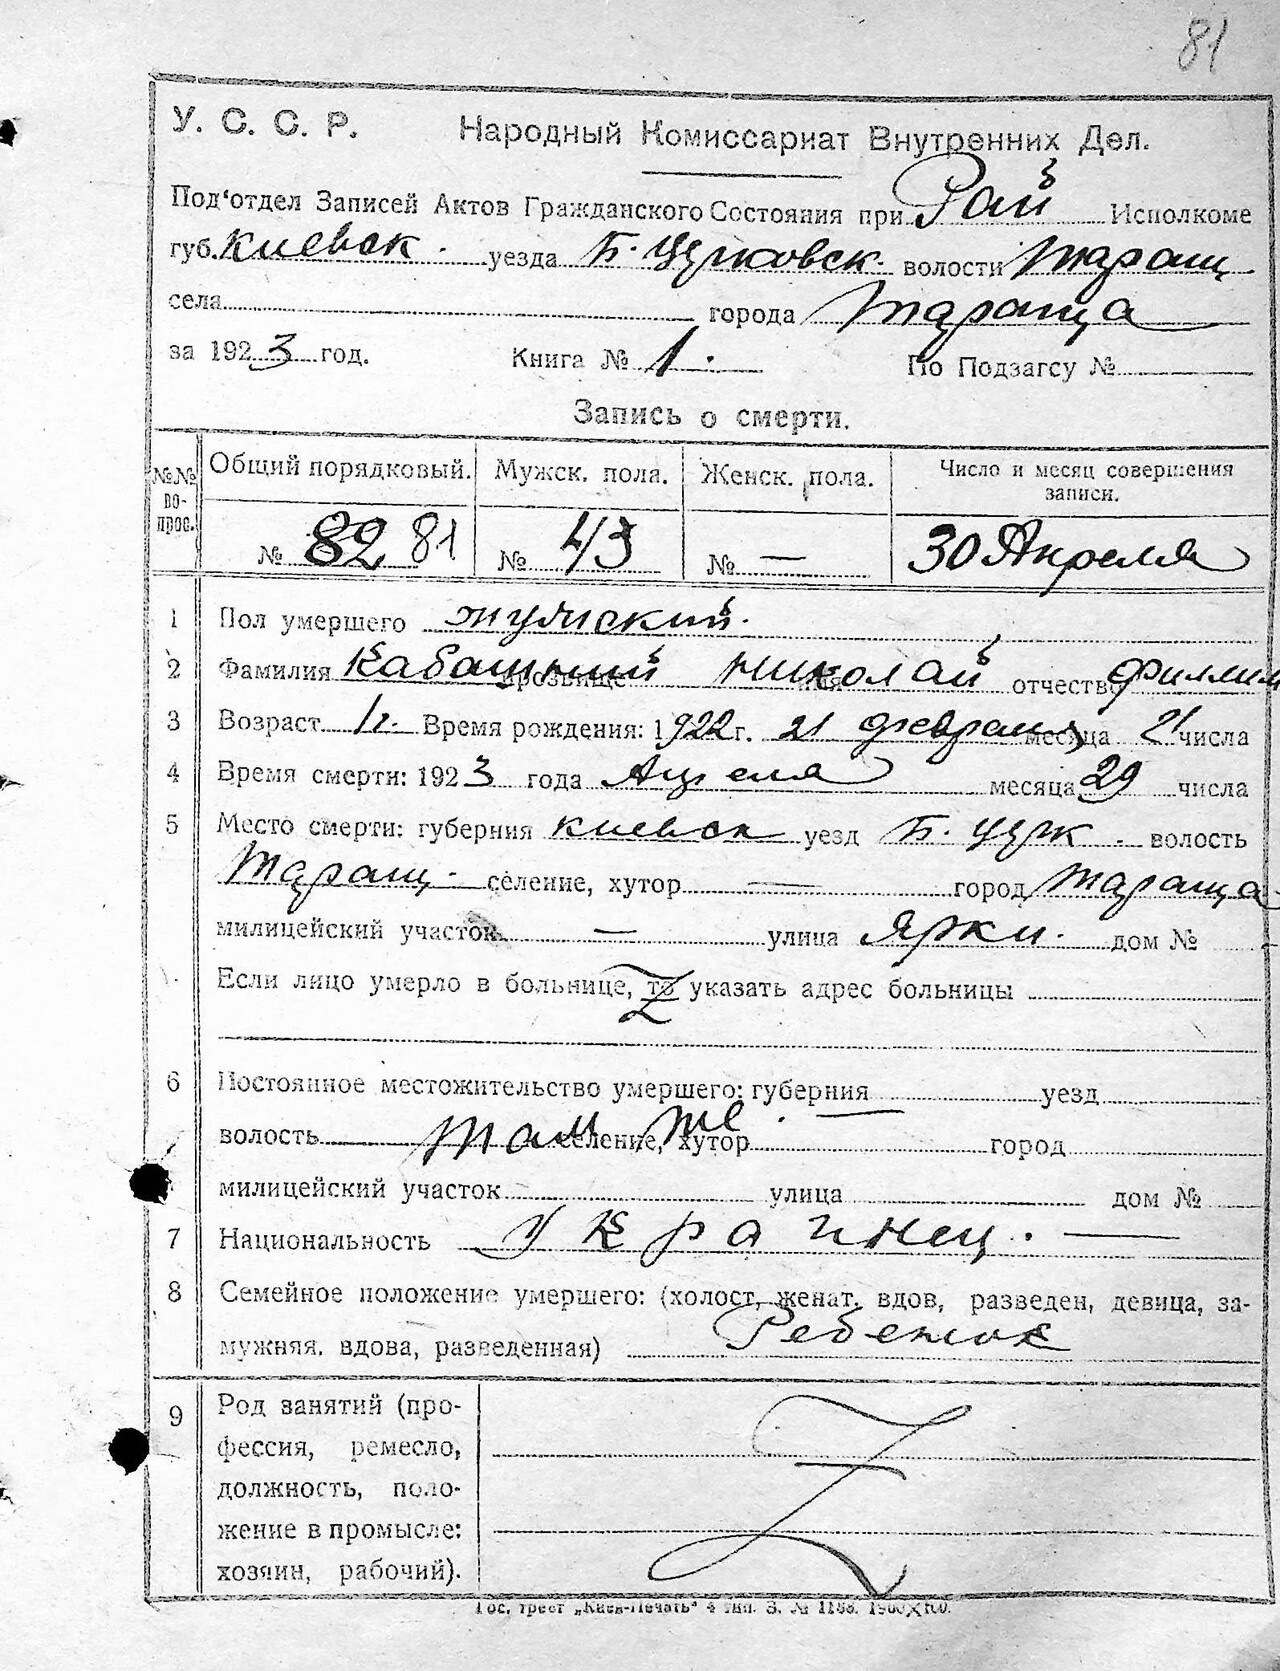 81
У. С. С. Р. Народный Комиссариат Внутренних Дел.
Под'отдел Записей Актов Гражданского Состояния при Рай Исполкоме
губ. Киевск. уезда Б. Црковск. волости Таращ
села города Тараща
за 1923 год. Книга № 1. По Подзагсу №
Запись о смерти.
№№ во-прос. Общий порядковый. Мужск. пола. Женск. пола. Число и месяц совершения записи.
№ 82 81 № 43 № — 30 Апреля
1 Пол умершего мужский.
2 Фамилия прозвище Николай отчество Филлим
3 Возраст 1 г. Время рождения: 1922 г. 21 февраля месяца 21 числа
4 Время смерти: 1923 года Апреля месяца 29 числа
5 Место смерти: губерния Киевск уезд Б. Црк. волость
Таращ. селение, хутор — город Тараща
милицейский участок — улица Ярки. дом № -
Если лицо умерло в больнице, то указать адрес больницы
6 Постоянное местожительство умершего: губерния — уезд
волость Там же. селение, хутор город
милицейский участок улица дом №
7 Национальность Украинец. —
8 Семейное положение умершего: (холост, женат, вдов, разведен, девица, за-
мужняя, вдова, разведенная) Ребенок
9 Род занятий (про-
фессия, ремесло,
должность, поло-
жение в промысле:
хозяин, рабочий).
Гос. трест „Киев-Печать" 4 тип. З. №